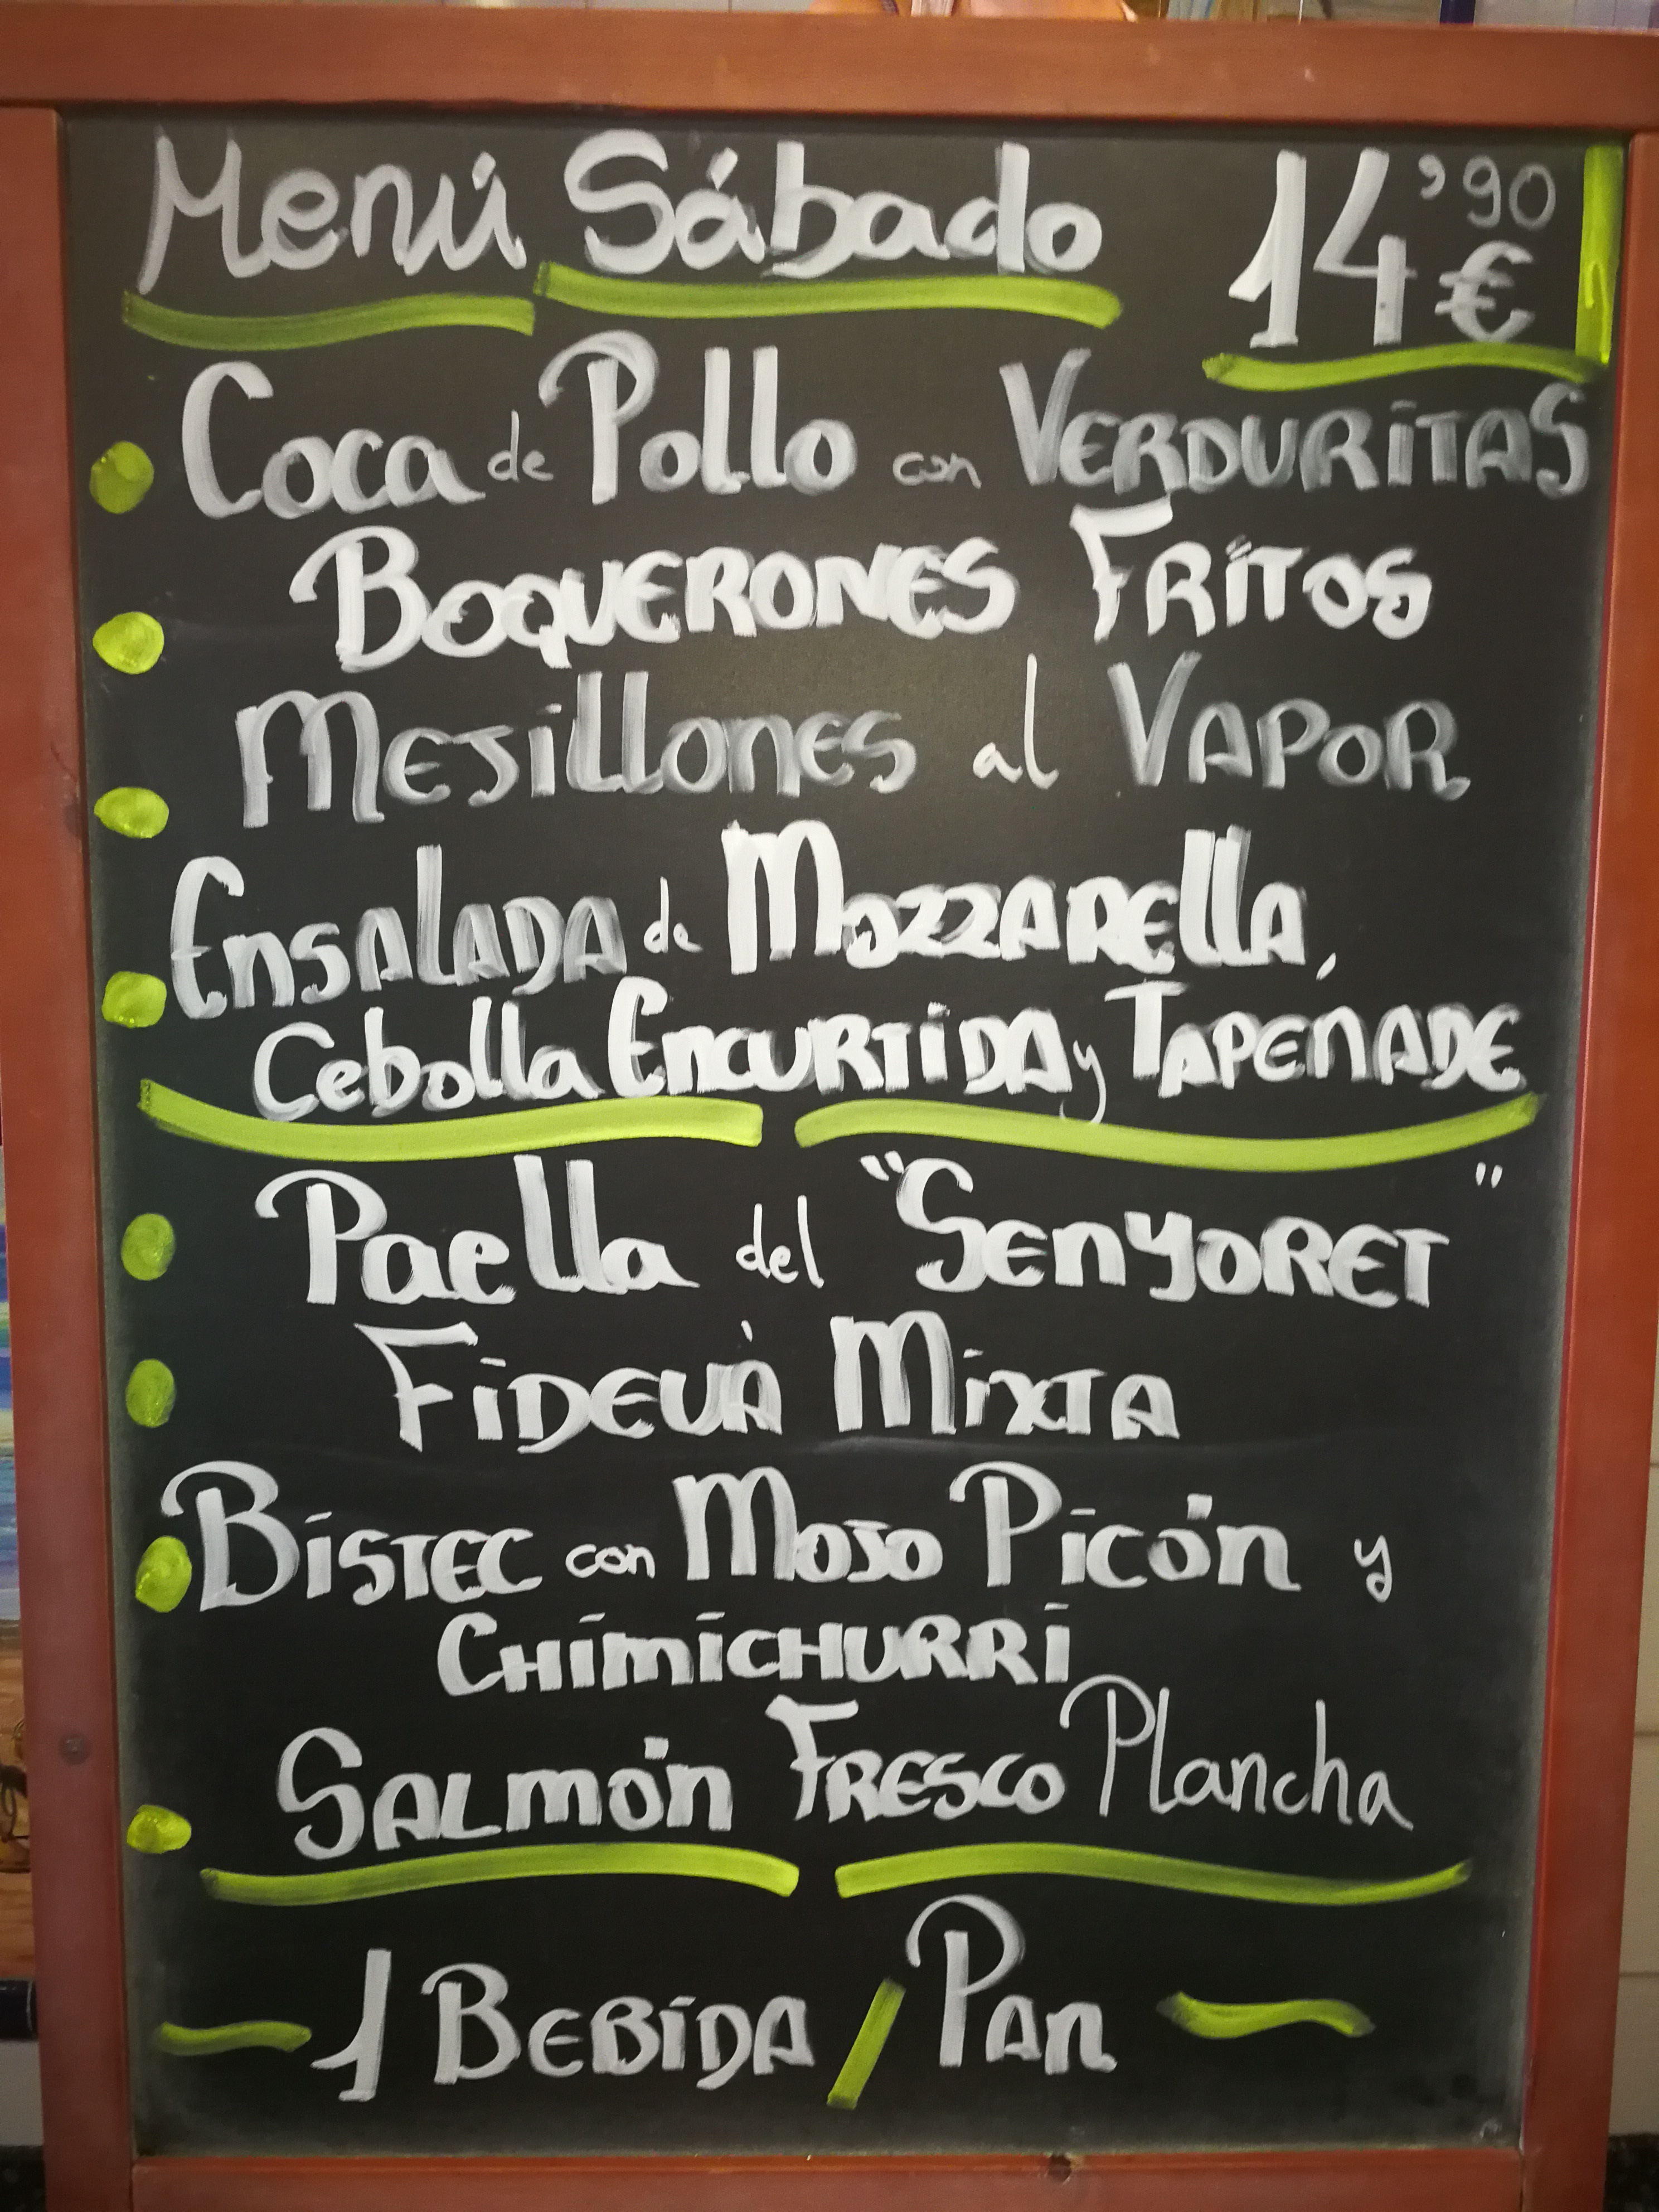 Menú Sábado 14'90 €
Coca de Pollo con VERDURITAS
BOQUERONES FRITOS
MEJillONES al VAPOR
ENSALADA de MOZZARElla,
Cebolla ENCURTIDA y TAPENADE
Paella del "SENYORET"
FIDEUÀ MIXTA
BISTEC con MOJO PICÓN y
CHIMICHURRI
SALMÓN FRESCO Plancha
1 BEBIDA / PAN